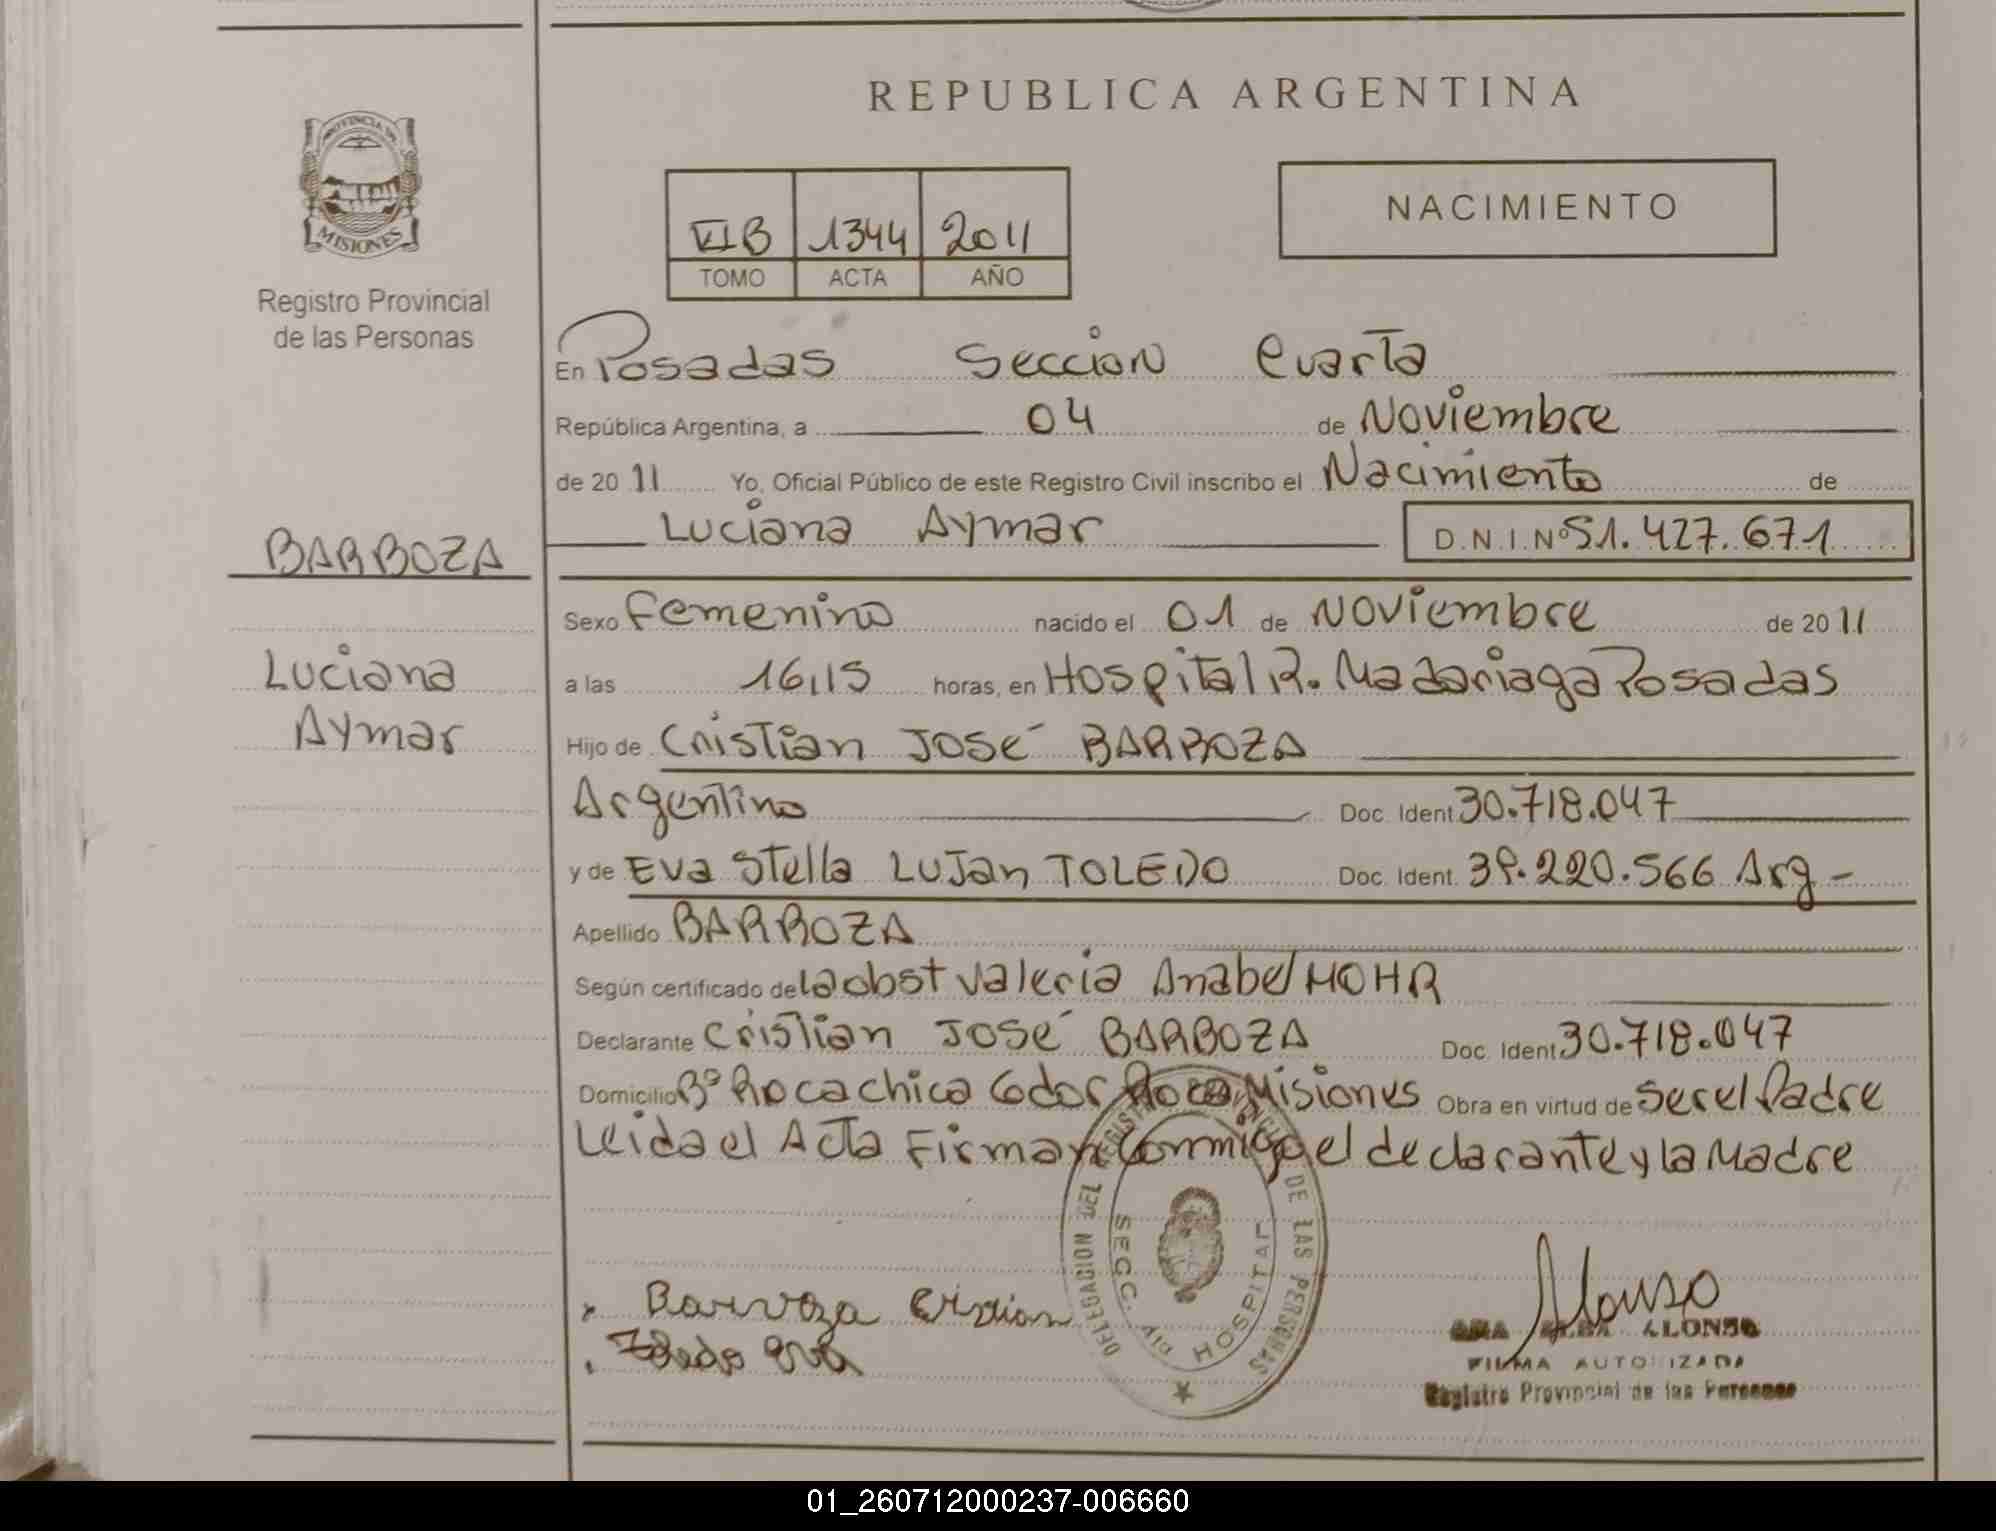 REPUBLICA ARGENTINA
PROVINCIA DE
MISIONES
Registro Provincial
de las Personas
NACIMIENTO
VI B 1344 2011
TOMO ACTA AÑO
En Posadas Seccion Cuarta
República Argentina, a 04 de Noviembre
de 20 11 Yo, Oficial Público de este Registro Civil inscribo el Nacimiento de
Luciana Aymar D.N.I. Nº 51.427.671
BARBOZA
Luciana
Aymar
Sexo Femenino nacido el 01 de Noviembre de 20 11
a las 16,15 horas, en Hospital R. Madariaga Posadas
Hijo de Cristian José BARBOZA
Argentino Doc. Ident. 30.718.047
y de Eva Stella Lujan TOLEDO Doc. Ident. 39.220.566 Arg-
Apellido BARBOZA
Según certificado de la obst Valeria Anabel MOHR
Declarante Cristian José BARBOZA Doc. Ident. 30.718.047
Domicilio Bº Roca chica Gdor Roca Misiones Obra en virtud de ser el Padre
Leida el Acta Firman Conmigo el declarante y la Madre
DELEGACION DEL REGISTRO PROVINCIAL DE LAS PERSONAS
SECC. HOSPITAL
Barvoza Cristian
Toledo Eva
Alonso
ANA ALBA ALONSO
FIRMA AUTORIZADA
Registro Provincial de las Personas
01_260712000237-006660